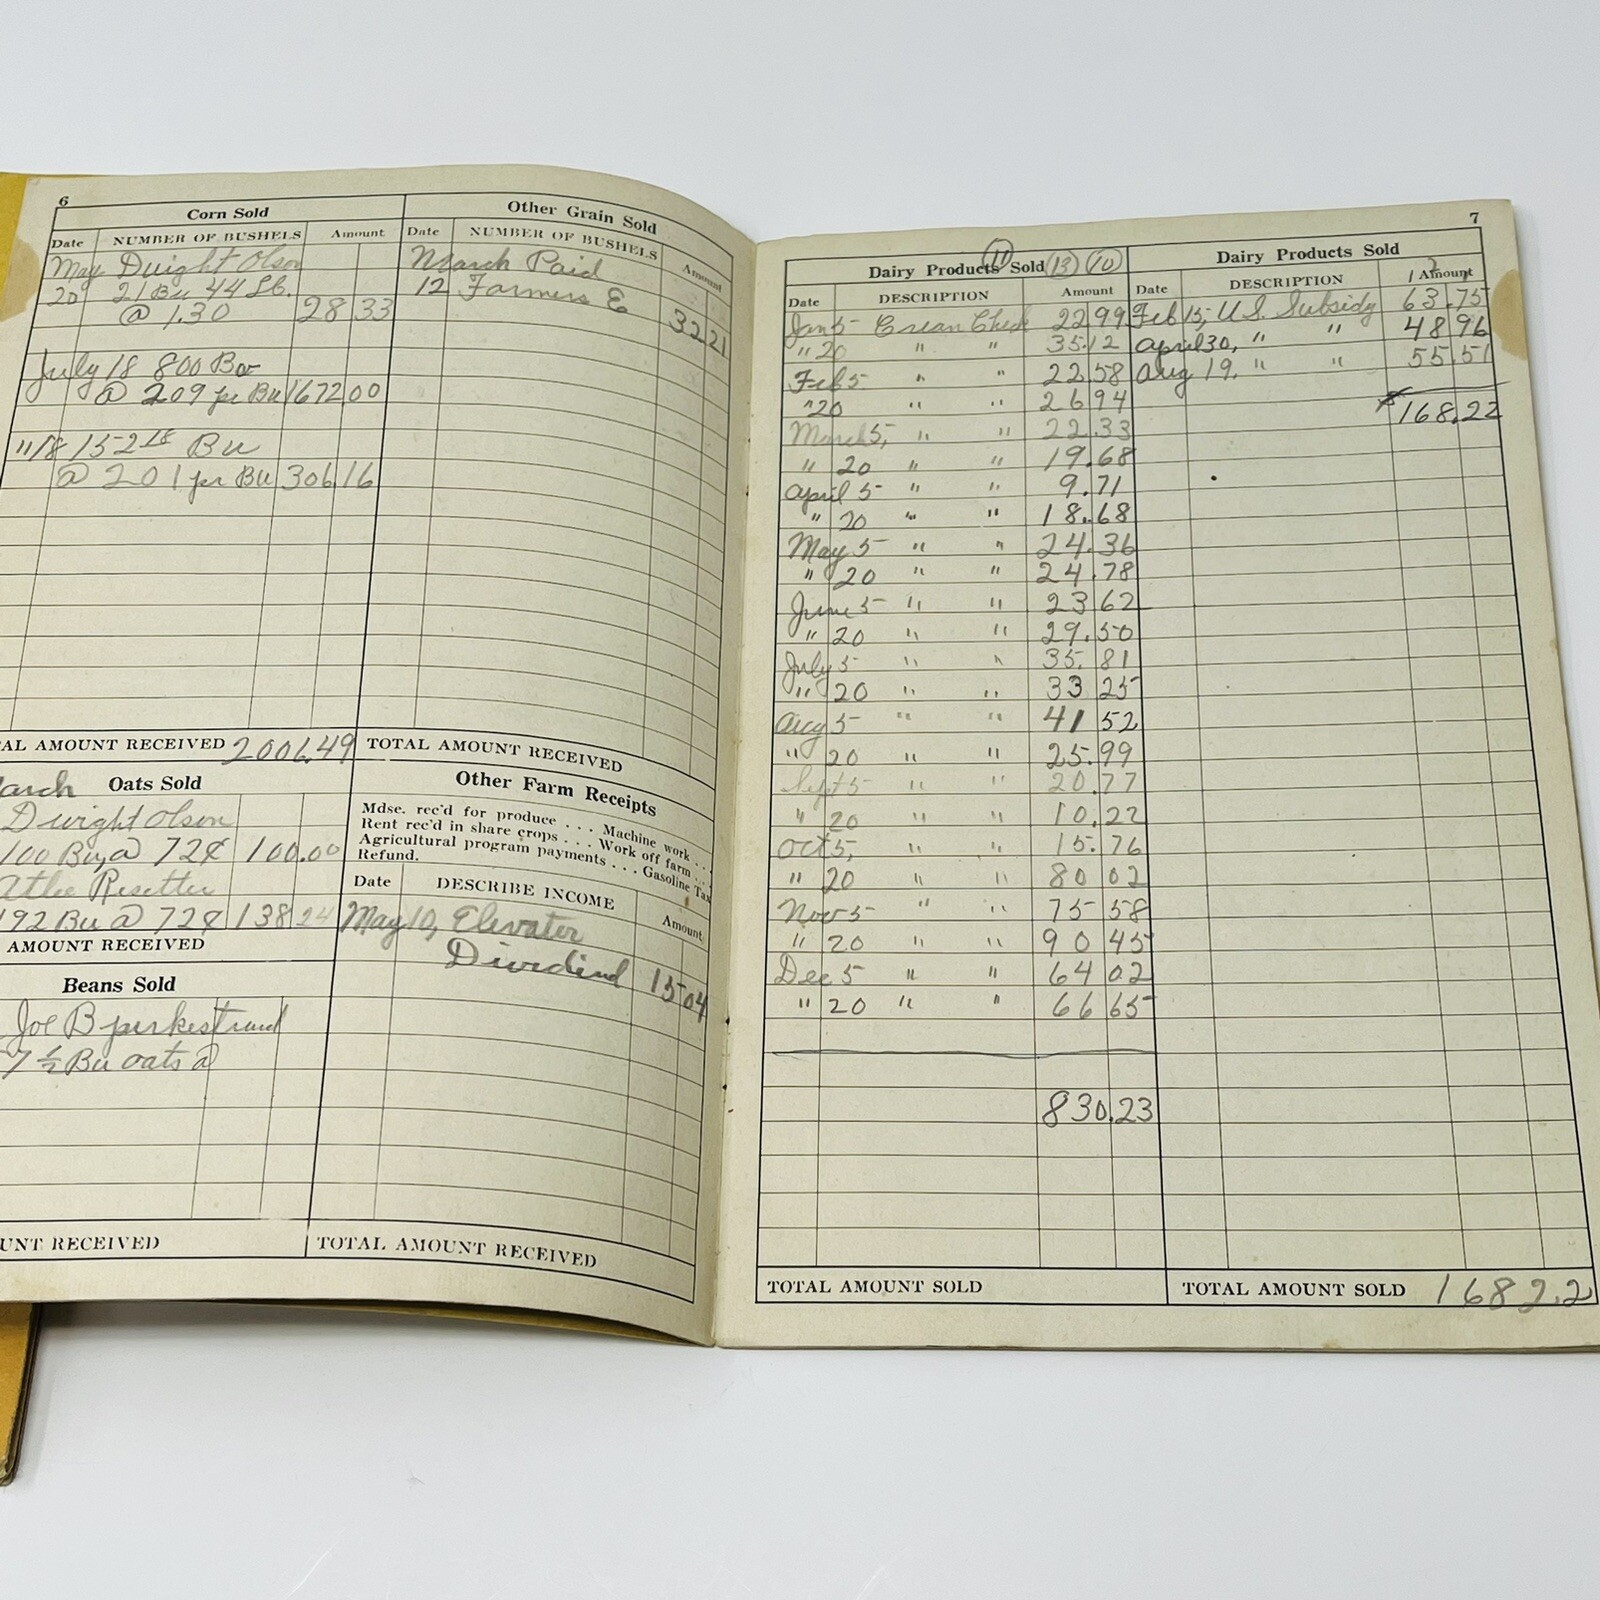 6
Corn Sold
Date NUMBER OF BUSHELS Amount
May Dwight Olson
20 21 Bu 44 Lb.
@ 1.30 28 33
July 18 800 Bu
@ 2.09 per Bu 1672 00
" 18 152 18 Bu
@ 2 01 per Bu 306 16
AL AMOUNT RECEIVED 2006.49
Other Grain Sold
Date NUMBER OF BUSHELS Amount
March Paid
12 Farmers E 32 21
TOTAL AMOUNT RECEIVED
arch Oats Sold
Dwight Olson
100 Bu, @ 72¢ 100.00
Atlee Rosetter
192 Bu @ 72¢ 138 24
AMOUNT RECEIVED
Beans Sold
Joe Bjerkestrand
7 ½ Bu oats @
UNT RECEIVED
Other Farm Receipts
Mdse. rec'd for produce . . . Machine work . . .
Rent rec'd in share crops . . . Work off farm . . .
Agricultural program payments . . . Gasoline Tax
Refund.
Date DESCRIBE INCOME Amount
May 10, Elevater
Dividend 15 04
TOTAL AMOUNT RECEIVED
7
Dairy Products Sold (11) (13) (10)
Date DESCRIPTION Amount
Jan 5 Cream Check 22 99
" 20 " " 35 12
Feb 5 " " 22 58
" 20 " " 26 94
March 5, " " 22 33
" 20 " " 19.68
April 5 " " 9.71
" 20 " " 18.68
May 5 " " 24.36
" 20 " " 24.78
June 5 " " 23 62
" 20 " " 29.50
July 5 " " 35.81
" 20 " " 33 25
Aug 5 " " 41 52
" 20 " " 25.99
Sept 5 " " 20.77
" 20 " " 10.22
Oct 5, " " 15.76
" 20 " " 80 02
Nov 5 " " 75 58
" 20 " " 90 45
Dec 5 " " 64 02
" 20 " " 66 65
830.23
TOTAL AMOUNT SOLD
Dairy Products Sold
Date DESCRIPTION Amount
Feb 15, U.S. Subsidy 63.75
April 30, " " 48 96
Aug 19, " " 55.51
$168.22
TOTAL AMOUNT SOLD 168 2.2